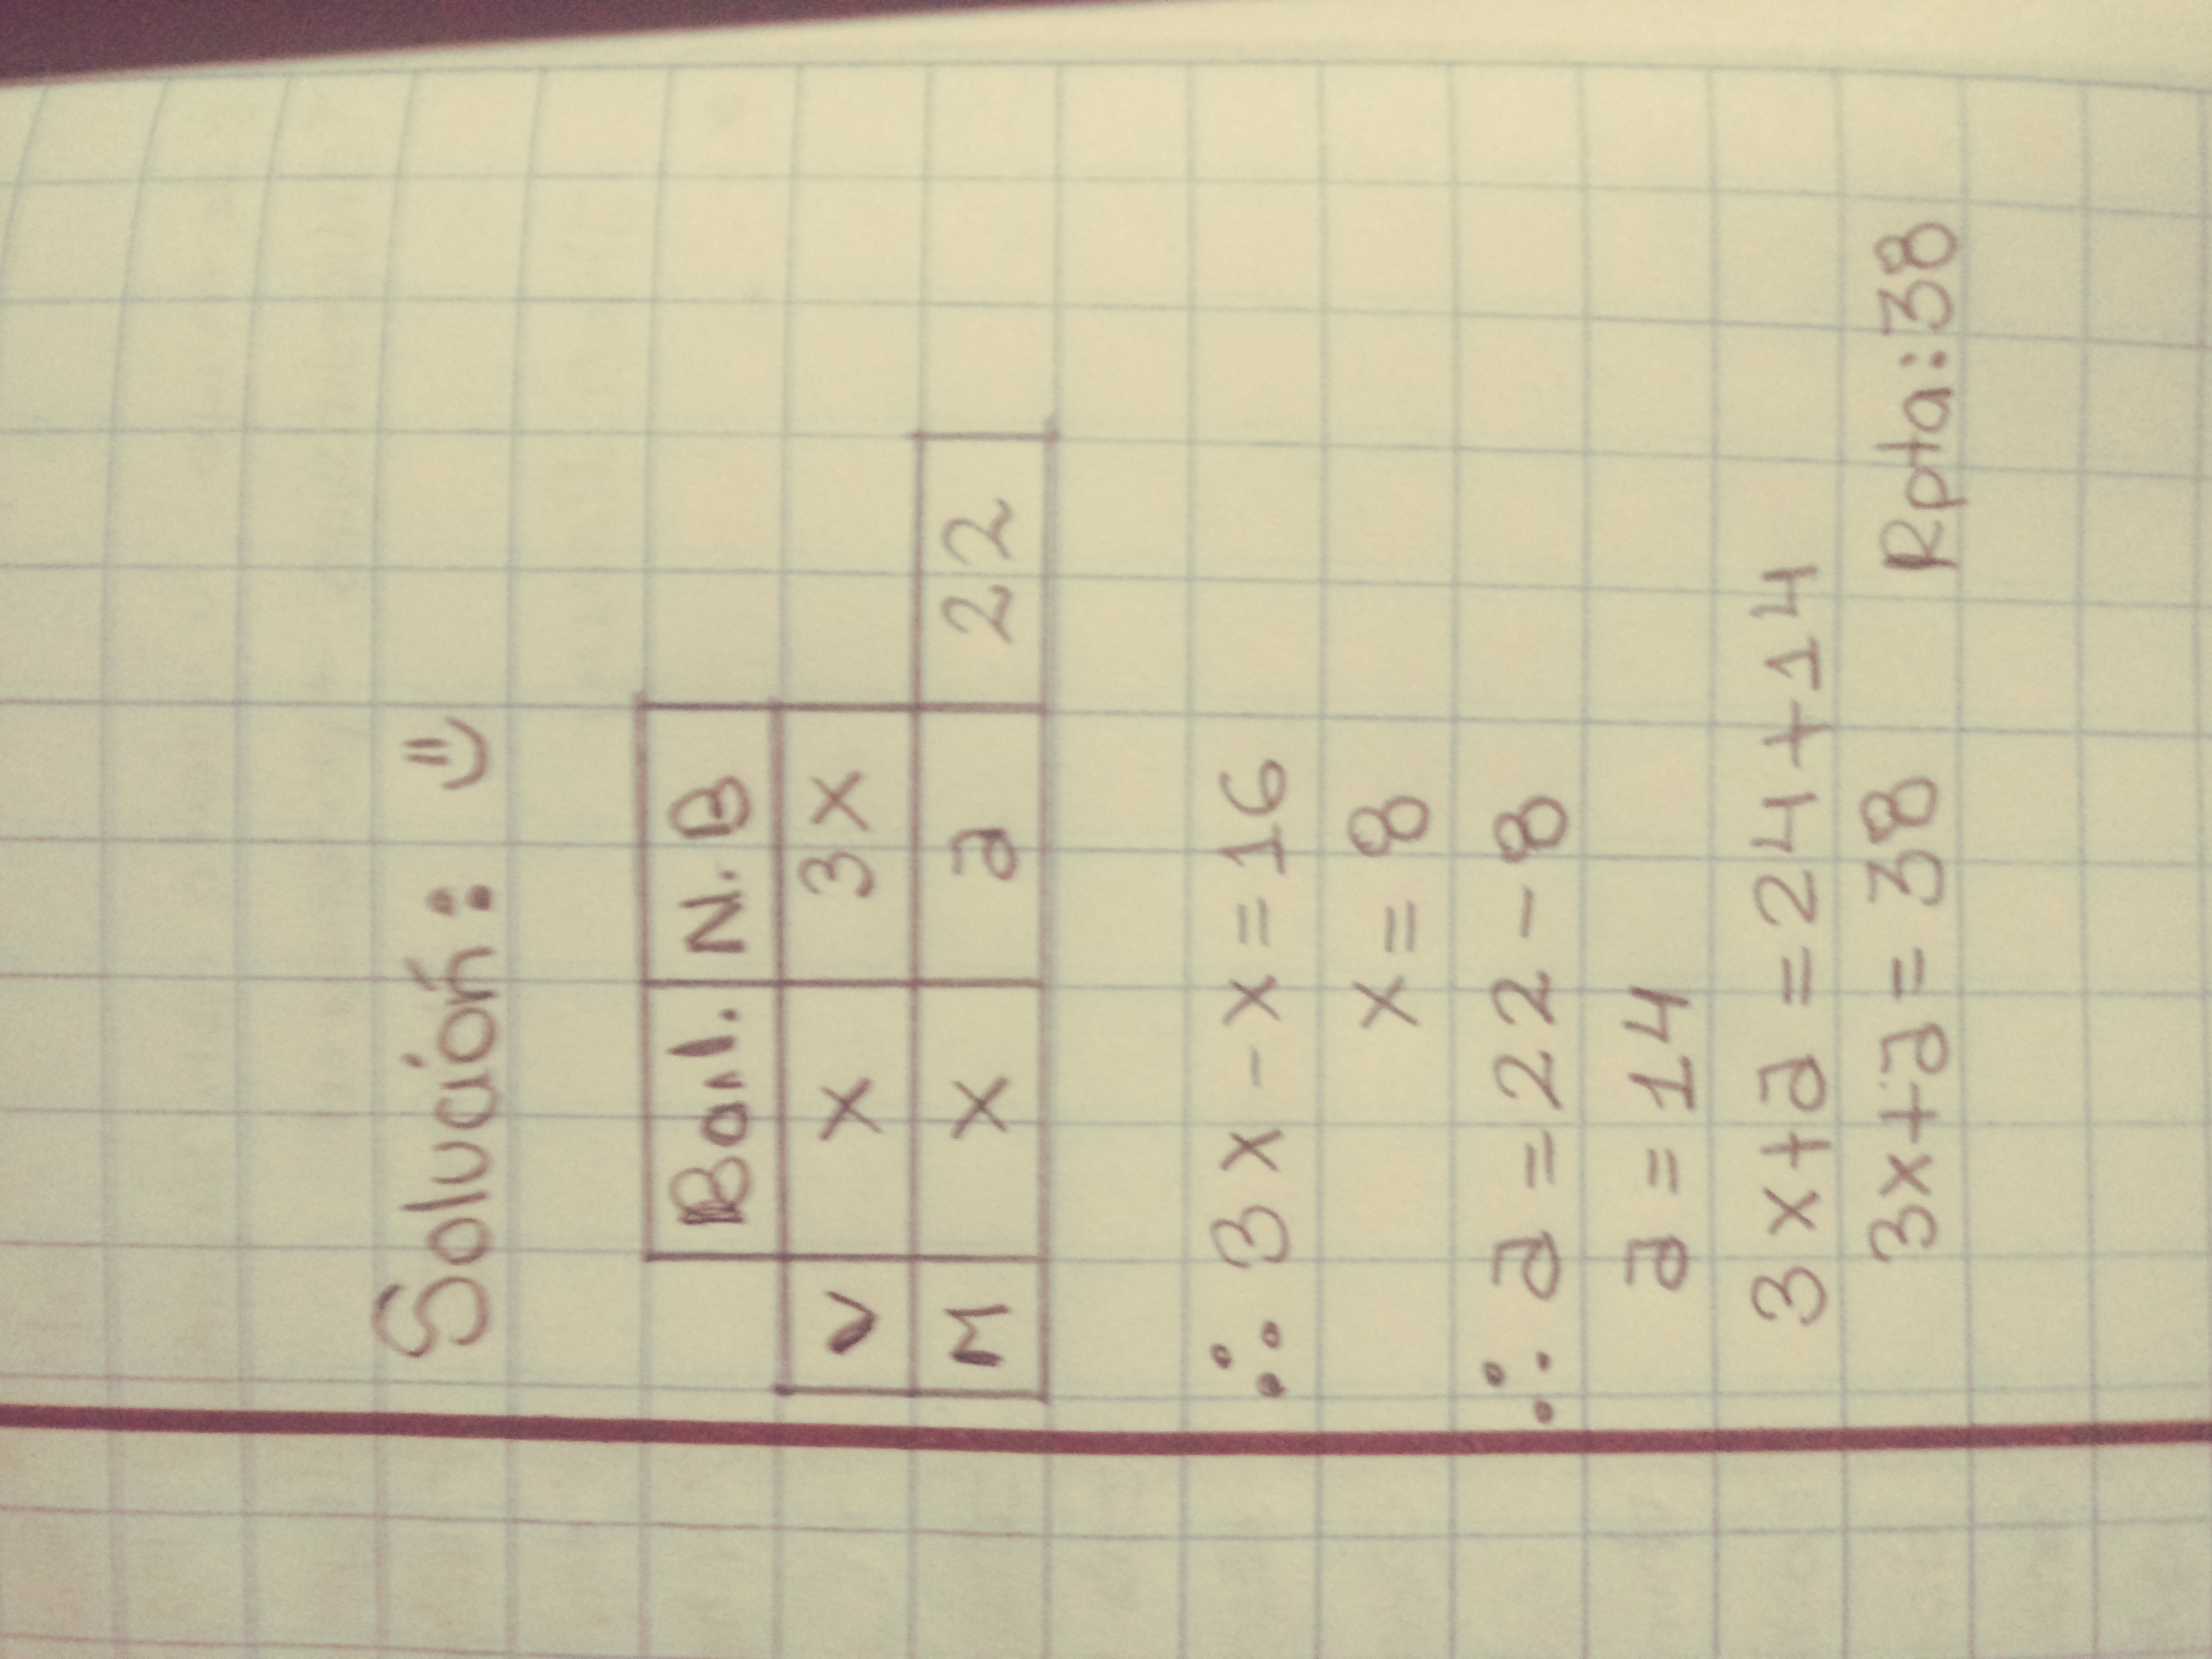 Solución: =)
Bail. N.B
V x 3x
M x a 22
∴ 3x-x=16
x=8
∴ a=22-8
a=14
3x+a=24+14
3x+a=38 Rpta:38